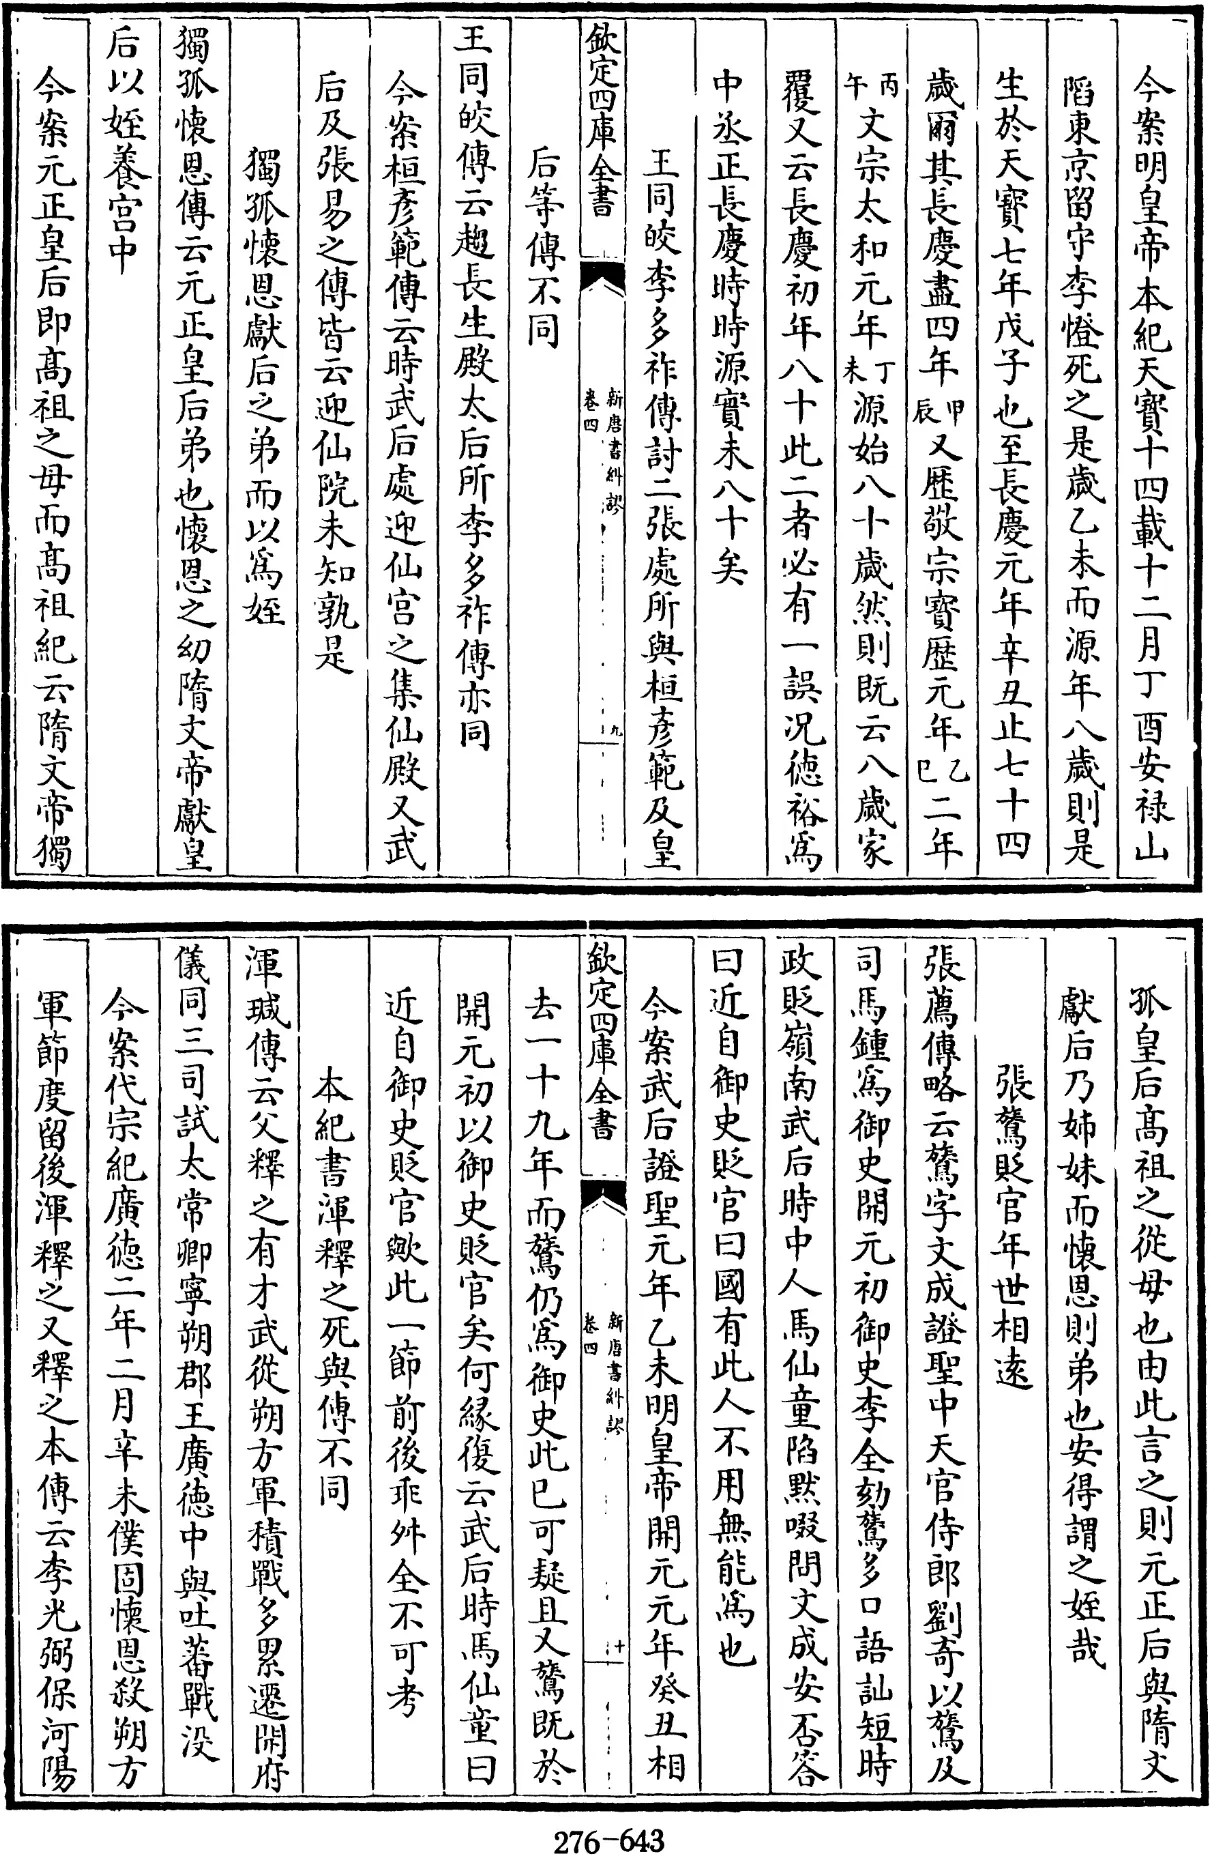 今案明皇帝本紀天寳十四載十二月丁酉安禄山
陷東京留守李憕死之是歲乙未而源年八歲則是
生於天寳七年戊子也至長慶元年辛丑止七十四
歲爾其長慶盡四年甲辰又歴敬宗寳歴元年乙巳二年
丙午文宗太和元年丁未源始八十歲然則既云八歲家
覆又云長慶初年八十此二者必有一誤况德裕爲
中丞正長慶時時源實未八十矣
王同皎李多祚傳討二張處所與桓彦範及皇
后等傳不同
王同皎傳云趨長生殿太后所李多祚傳亦同
今案桓彦範傳云時武后處迎仙宫之集仙殿又武
后及張易之傳皆云迎仙院未知孰是
獨孤懷恩獻后之弟而以爲姪
獨孤懷恩傳云元正皇后弟也懷恩之幼隋文帝獻皇
后以姪養宫中
今案元正皇后即髙祖之母而髙祖紀云隋文帝獨
欽定四庫全書
新唐書糾謬
卷四
九
孤皇后髙祖之從母也由此言之則元正后與隋文
獻后乃姉妹而懷恩則弟也安得謂之姪哉
張鷟貶官年世相逺
張薦傳略云鷟字文成證聖中天官侍郎劉竒以鷟及
司馬鍾爲御史開元初御史李全劾鷟多口語訕短時
政貶嶺南武后時中人馬仙童陷黙啜問文成安否答
曰近自御史貶官曰國有此人不用無能爲也
今案武后證聖元年乙未明皇帝開元元年癸丑相
去一十九年而鷟仍爲御史此已可疑且又鷟既於
開元初以御史貶官矣何縁復云武后時馬仙童曰
近自御史貶官歟此一節前後乖舛全不可考
本紀書渾釋之死與傳不同
渾瑊傳云父釋之有才武從朔方軍積戰多累遷開府
儀同三司試太常卿寧朔郡王廣德中與吐蕃戰没
今案代宗紀廣德二年二月辛未僕固懷恩殺朔方
軍節度留後渾釋之又釋之本傳云李光弼保河陽
欽定四庫全書
新唐書糾謬
卷四
十
276-643